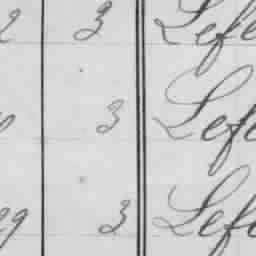 2 3 Lefe
3 Lefe
29 3 Lefe